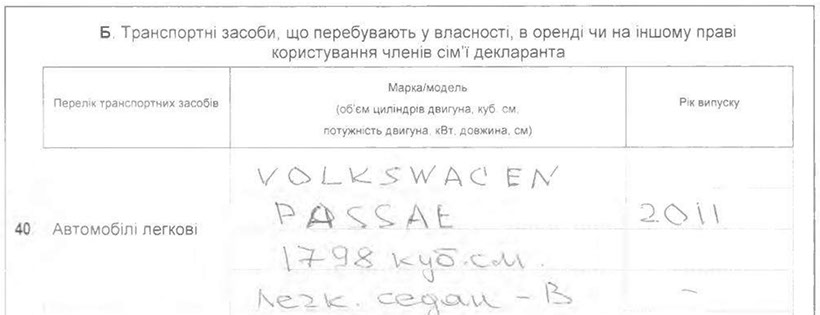 Б. Транспортні засоби, що перебувають у власності, в оренді чи на іншому праві
користування членів сім'ї декларанта
Перелік транспортних засобів
Марка/модель
(об'єм циліндрів двигуна, куб. см,
потужність двигуна, кВт, довжина, см)
Рік випуску
40 Автомобілі легкові
VOLKSWAGEN
PASSAT 2011
1798 куб.см.
легк. седан - В -